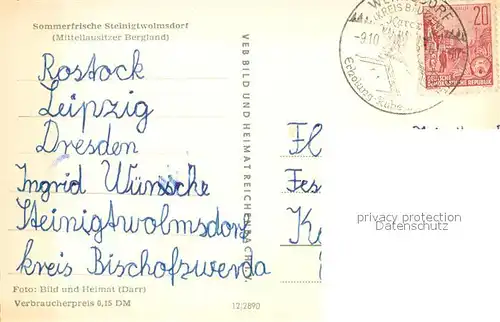 Sommerfrische Steinigtwolmsdorf
(Mittellausitzer Bergland)
Rostock
Leipzig
Dresden
Ingrid Wünsche
Steinigtwolmsdorf
kreis Bischofswerda
Foto: Bild und Heimat (Darr)
Verbraucherpreis 0,15 DM
12/2890
VEB BILD UND HEIMAT REICHENBACH I. V.
20
DEUTSCHE
DEMOKRATISCHE REPUBLIK
-9.10
privacy protection
Datenschutz